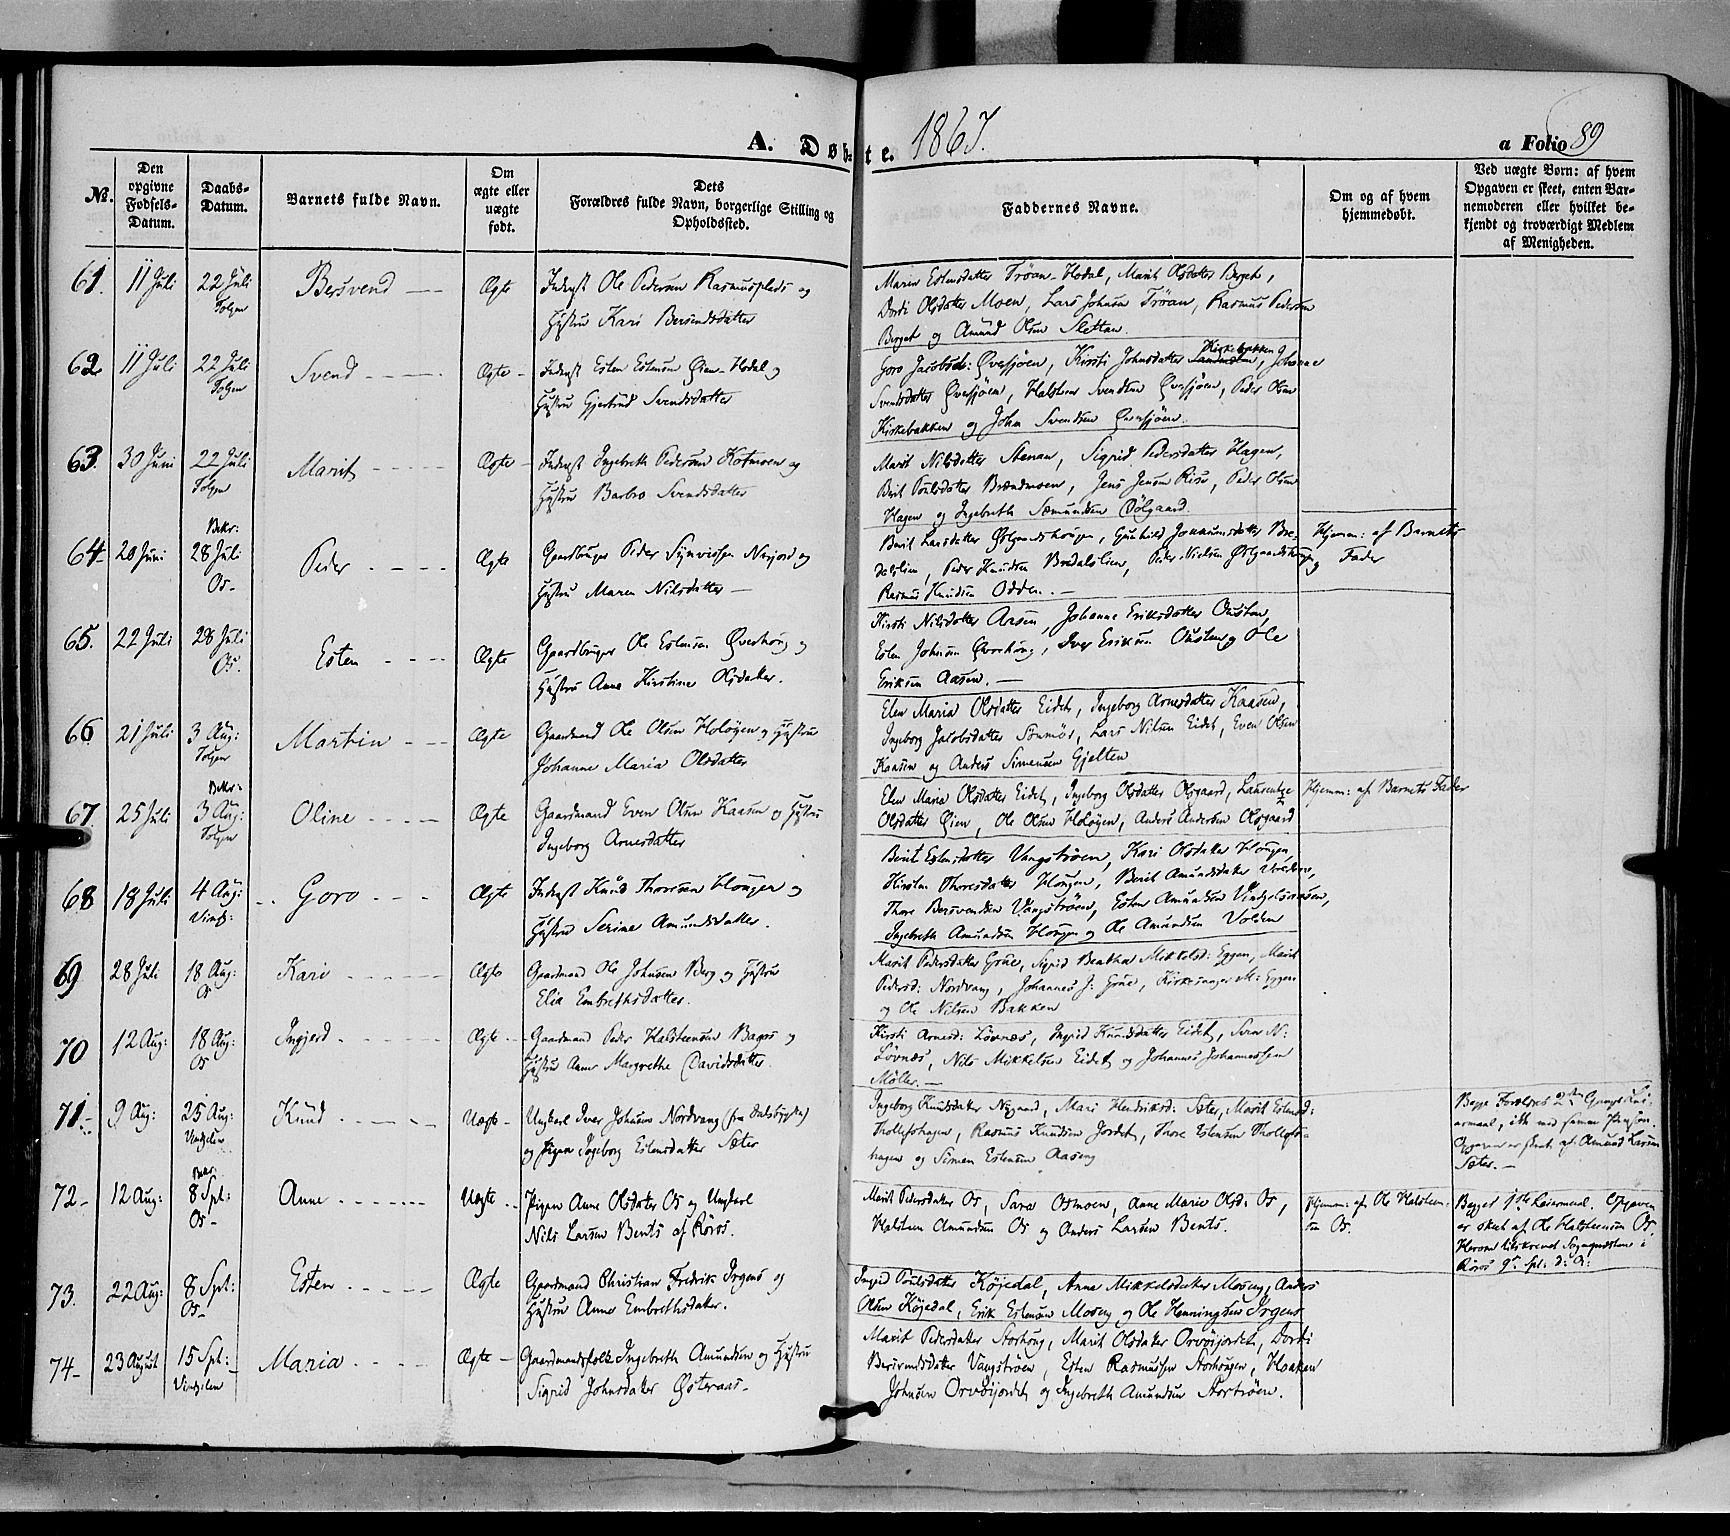 A. Døbte. 1867. a Folio 89
No. Den opgivne Fødsels-Datum. Daabs-Datum. Barnets fulde Navn. Om ægte eller uægte født. Dets Forældres fulde Navn, borgerlige Stilling og Opholdssted. Faddernes Navne. Om og af hvem hjemmedøbt. Ved uægte Børn: af hvem Opgaven er skeet, enten Barnemoderen eller hvilket bekjendt og troværdigt Medlem af Menigheden.
61. 11 Juli 22 Juli Tolgen Bersvend Ægte Inderst Ole Pedersen Rasmusplads og
Hustru Kari Bersvendsdatter
Maren Estensdatter Trøan-Hodal, Marit Olsdatter Berget,
Dordi Olsdatter Moen, Lars Johnsen Trøan, Rasmus Pedersen
Berget og Amund Olsen Slettan.
62 11 Juli 22 Juli Tolgen Svend Ægte Inderst Esten Estensen Øien-Hodal og
Hustru Gjertrud Svendsdatter
Goro Jacobsd: Øversjøen, Kirsti Johnsdatter Kirkebakken, Johanne
Svendsdatter Øversjøen, Halsten Svendsen Øversjøen, Peder Olsen
Kirkebakken og John Svendsen Øversjøen.
63. 30 Juni 22 Juli Tolgen Marit Ægte Inderst Ingebreth Pedersen Kotmoen og
Hustru Barbro Svendsdatter
Marit Nilsdatter Stenan, Sigrid Pedersdatter Hagen,
Berit Poulsdatter Brændmoen, Jens Jensen Rise, Peder Olsen
Hagen og Ingebreth Sæmundsen Dølgaard.
64 20 Juni Bekr: 28 Juli Os Peder Ægte Gaardbruger Peder Synvissen Nerjord og
Hustru Maren Nilsdatter
Berit Larsdatter Østgaardshougen, Gunhild
Peder Knudsen Bredalslien, Peder Nielsen Østgaardshaug og
Rasmus Knudsen Odden.
Hjemm: af Barnets
Fader
65. 22 Juli 28 Juli Os. Esten Ægte Gaardbruger Ole Estensen Øverhoug og
Hustru Anne Kirstine Olsdatter.
Kirsti Nilsdatter Aasen, Johanne Eriksdatter Ousten,
Esten Johnsen Øverhoug, Iver Eriksen Ousten og Ole
Eriksen Aasen.
66 21 Juli 3 Aug: Tolgen Martin Ægte Gaardmand Ole Olsen Holøyen og Hustru
Johanne Maria Olsdatter
Elen Maria Olsdatter Eidet, Ingeborg Arnesdatter Kaasen,
Ingeborg Jacobsdatter Sønmør, Lars Nilsen Eidet, Even Olsen
Kaasen og Anders Simensen Gjelten
67 25 Juli Bekr: 3 Aug: Tolgen Oline Ægte Gaardmand Even Olsen Kaasen og Hustru
Ingeborg Arnesdatter
Elen Maria Olsdatter Eidet, Ingeborg Olsdatter Olsgaard, Laurentze
Olsdatter Øien, Ole Olsen Holøyen, Anders Andersen Olsgaard
Hjemm: af Barnets Fader
68 18 Juli 4 Aug: Goro Ægte Inderst Knud Thoresen Hougen og
Hustru Serine Amundsdatter.
Berit Estensdatter Vangstrøen, Kari Olsdatter Hougen,
Kirsten Thoresdatter Hougen, Berit Amundsdatter Volden,
Thore Bersvendsen Vangstrøen, Esten Amundsen Vingelsaasen,
Ingebreth Amundsen Hougen og Ole Amundsen Volden
69 28 Juli 18 Aug: Os Kari Ægte Gaardmand Ole Johnsen Berg og Hustru
Elia Embrethsdatter.
Marit Pedersdatter Grue, Sigrid Beathe Mikkelsd: Eggen, Marit
Pedersd: Nordvang, Johannes J: Grue, Kirkesanger M: Eggen
og Ole Nilsen Bakken
70 12 Aug: 18 Aug: Os Ingjerd Ægte Gaardmand Peder Halstensen Bagos og
Hustru Anne Margrethe Davidsdatter.
Kirsti Arnesd: Løvnæs, Ingrid Knudsdatter Eidet, Sven N:
Løvnæs, Nils Mikkelsen Eidet og Johannes Johannessen
Møller.
71 9 Aug: 25 Aug: Vingelen Knud Uægte Ungkarl Iver Johnsen Nordvang (fra Dalsbygden)
og Pigen Ingeborg Estensdatter Sæter
Ingeborg Knudsdatter Nygaard, Mari Hendriksd: Sæter, Marit Estensd:
Thollefshagen, Rasmus Knudsen Jordet, Thore Estensen Thollefs-
hagen og Simen Estensen Aaseng
Begge Forældres 2det
ikke med samme Person.
Opgaven er skeet af Amund Larsen
Sæter.
72 12 Aug: 8 Spt: Os Anne Uægte Pigen Anne Olsdatter Os og Ungkarl
Nils Larsen Bents af Røros.
Marit Pedersdatter Os, Sara Osmoen, Anne Marie Olsd: Os,
Halsten Amundsen Os og Anders Larsen Bents.
Hjemm: af Ole Halsteen-
sen Os.
Begges 1ste Leiermaal. Opgaven
er skeet af Ole Halsteensen Os.
Herom tilskrevet Sognepræsten i
Røros 9de Spt: d: A:
73. 22 Aug: 8 Spt: Os Esten Ægte Gaardmand Christian Fredrik Irgens og
Hustru Anne Embrethsdatter.
Ingrid Poulsdatter Kojedal, Anne Mikkelsdatter Moseng, Anders
Olsen Kojedal, Erik Estensen Moseng og Ole Henningsen Irgens
74 23 August 15 Spt: Vingelen Maria Ægte Gaardmandsfolk Ingebreth Amundsen og Hustru
Sigrid Johnsdatter Østeraas
Marit Pedersdatter Storhoug, Marit Olsdatter Orvøsjordet, Dordi
Bersvendsdatter Vangstrøen, Esten Rasmussen Storhougen, Haaken
Johnsen Orvøsjordet og Ingebreth Amundsen Stortrøen.